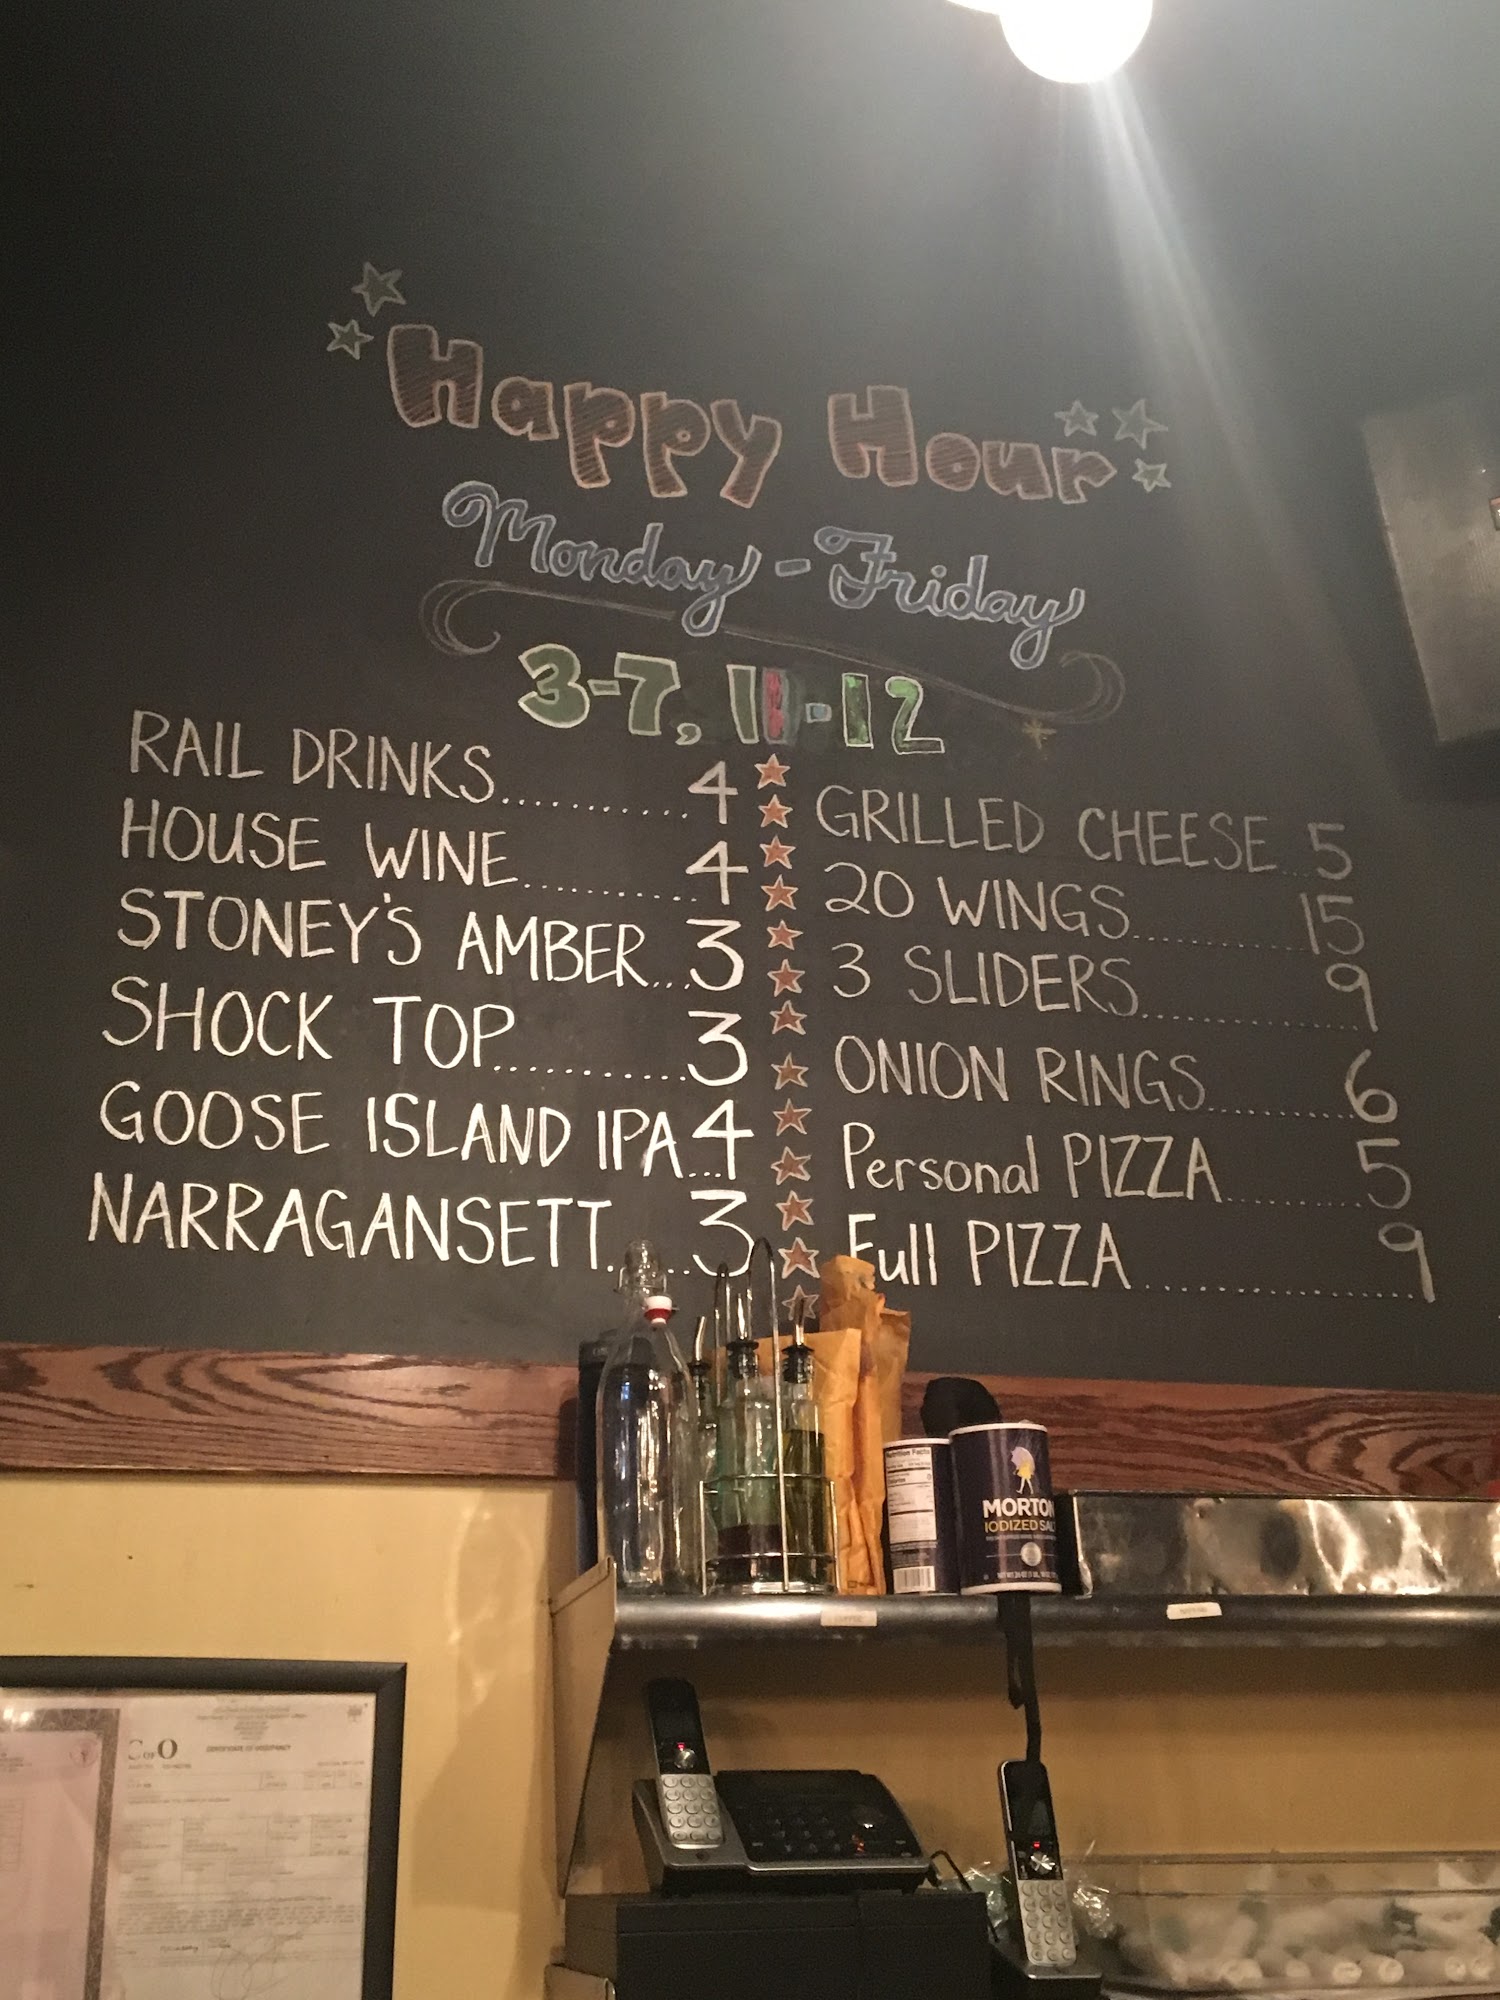 Happy Hour
Monday - Friday
3-7, 11-12
RAIL DRINKS..........4
HOUSE WINE..........4
STONEY'S AMBER...3
SHOCK TOP...........3
GOOSE ISLAND IPA...4
NARRAGANSETT.....3
GRILLED CHEESE...5
20 WINGS..........15
3 SLIDERS..............9
ONION RINGS..........6
Personal PIZZA..........5
Full PIZZA..................9
Nutrition Facts
MORTON
IODIZED SALT
C OF O
CERTIFICATE OF OCCUPANCY